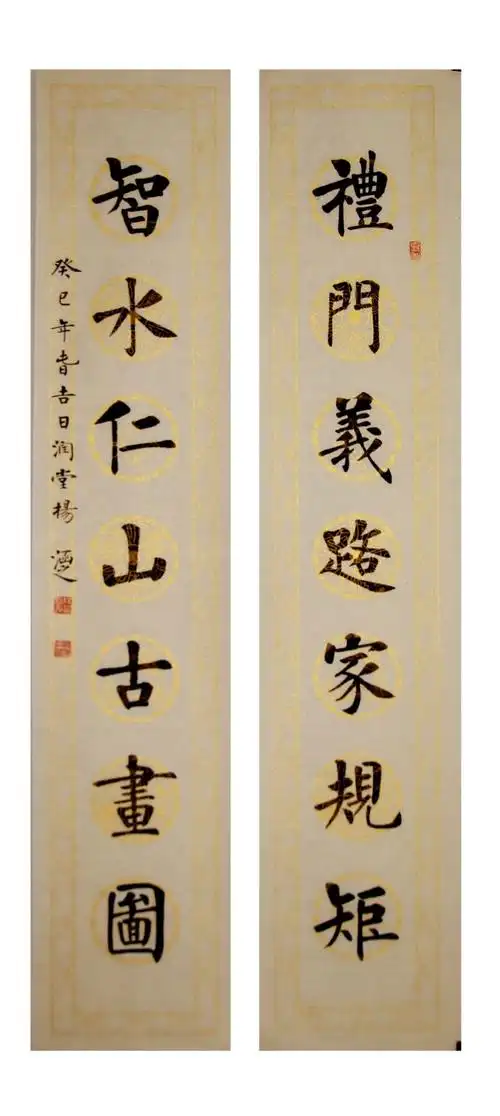 禮門義路家規矩
智水仁山古畫圖
癸巳年春吉日润堂楊